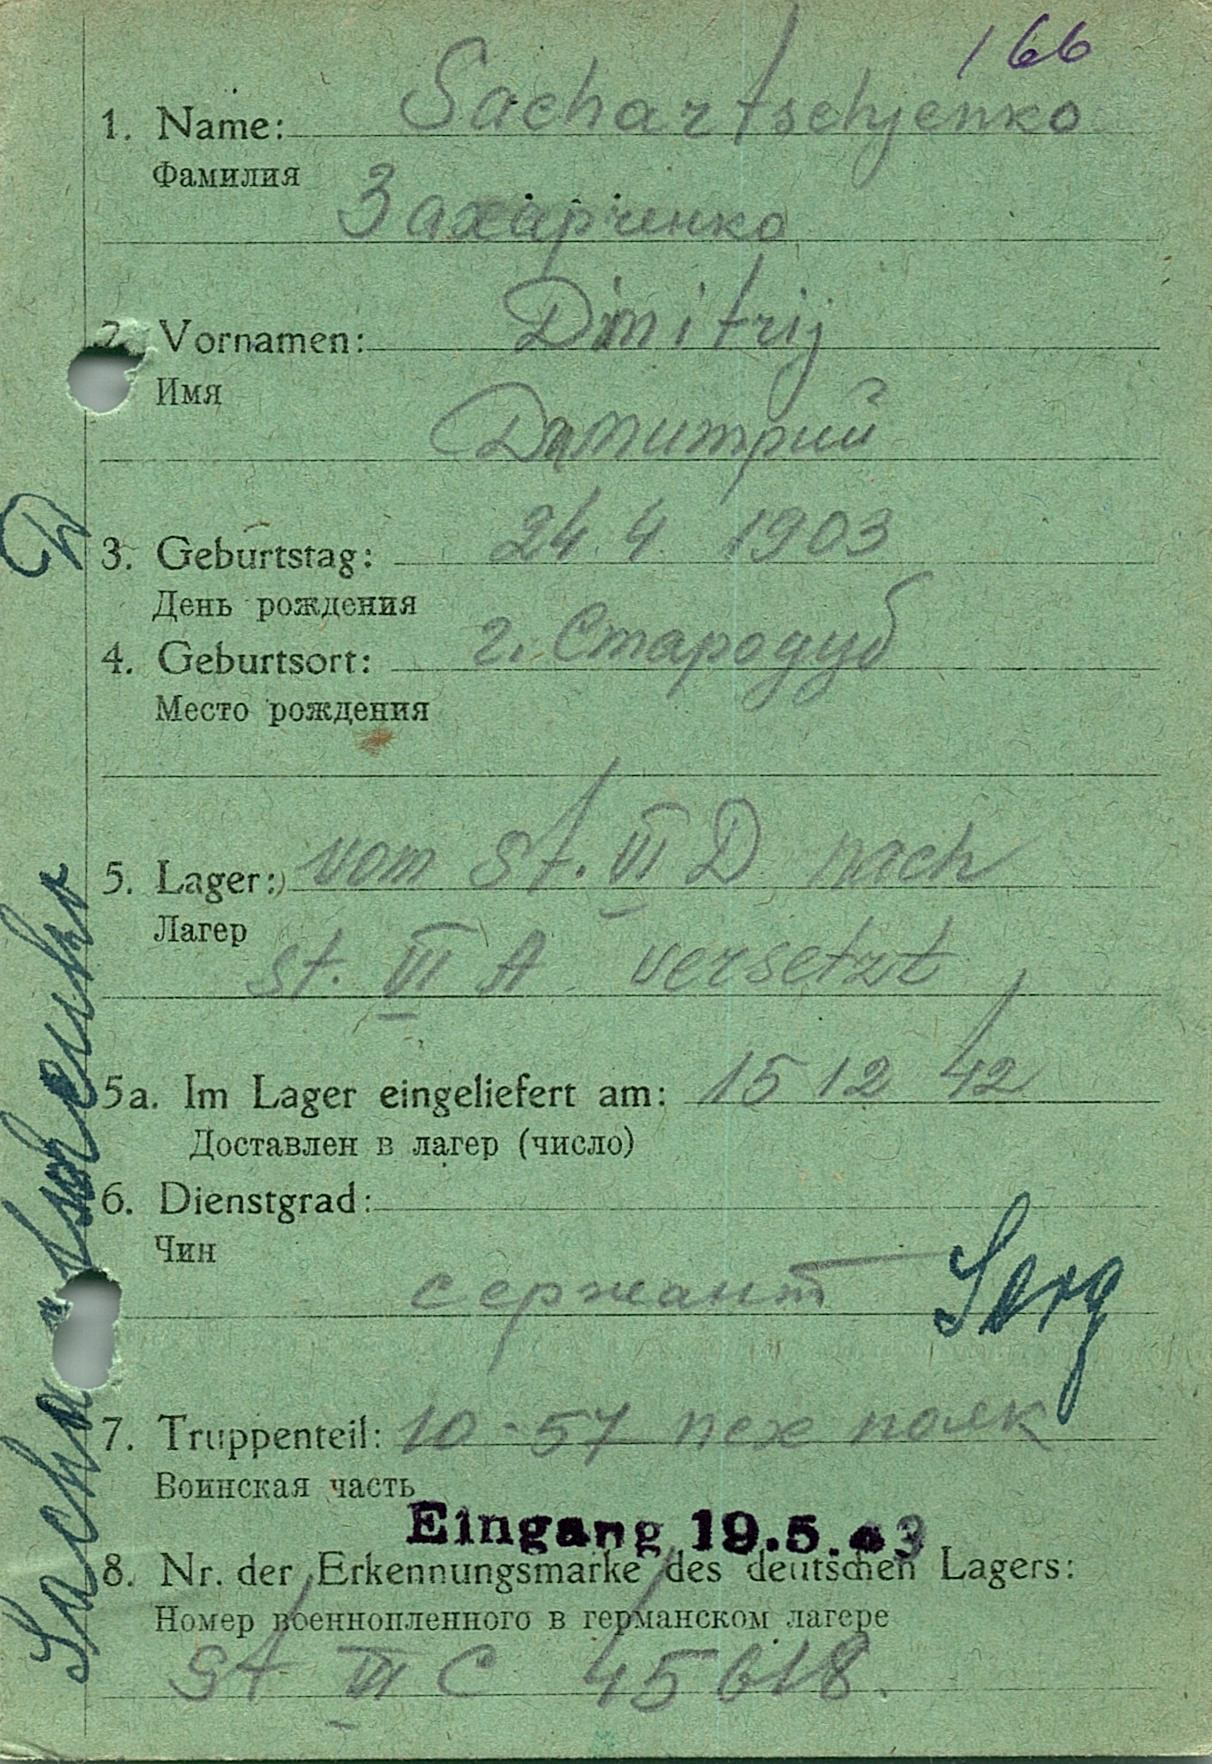 166
1. Name: Sachartschjenko
Фамилия
Захарченко
2. Vornamen: Dimitrij
Имя
Димитрий
3. Geburtstag: 24.4 1903
День рождения
4. Geburtsort: г. Стародуб
Место рождения
5. Lager: vom St. VI D nach
Лагер
St. VI A versetzt
5a. Im Lager eingeliefert am: 15 12 42
Доставлен в лагер (число)
6. Dienstgrad:
Чин
сержант Serg
7. Truppenteil: 10-57 пех полк
Воинская часть
Eingang 19.5.43
8. Nr. der Erkennungsmarke des deutschen Lagers:
Номер военнопленного в германском лагере
St VI C 45618.
Sachartschenko D